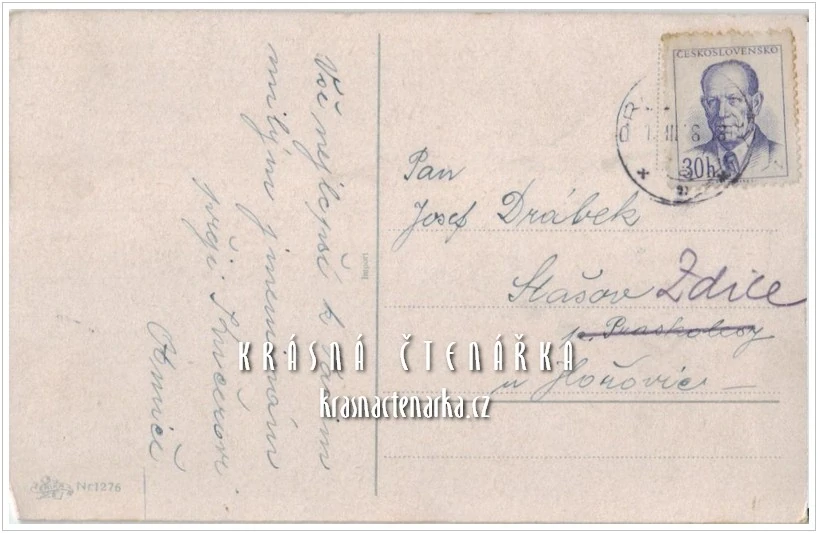 Vše nejlepší k Vašim
milým jmeninám
přejí
Pan
Josef Drábek
Stašov Zdice
p. Praskolesy
u Hořovic
ČESKOSLOVENSKO
30h
KRÁSNÁ ČTENÁŘKA
krasnactenarka.cz
Import
Nr 1276